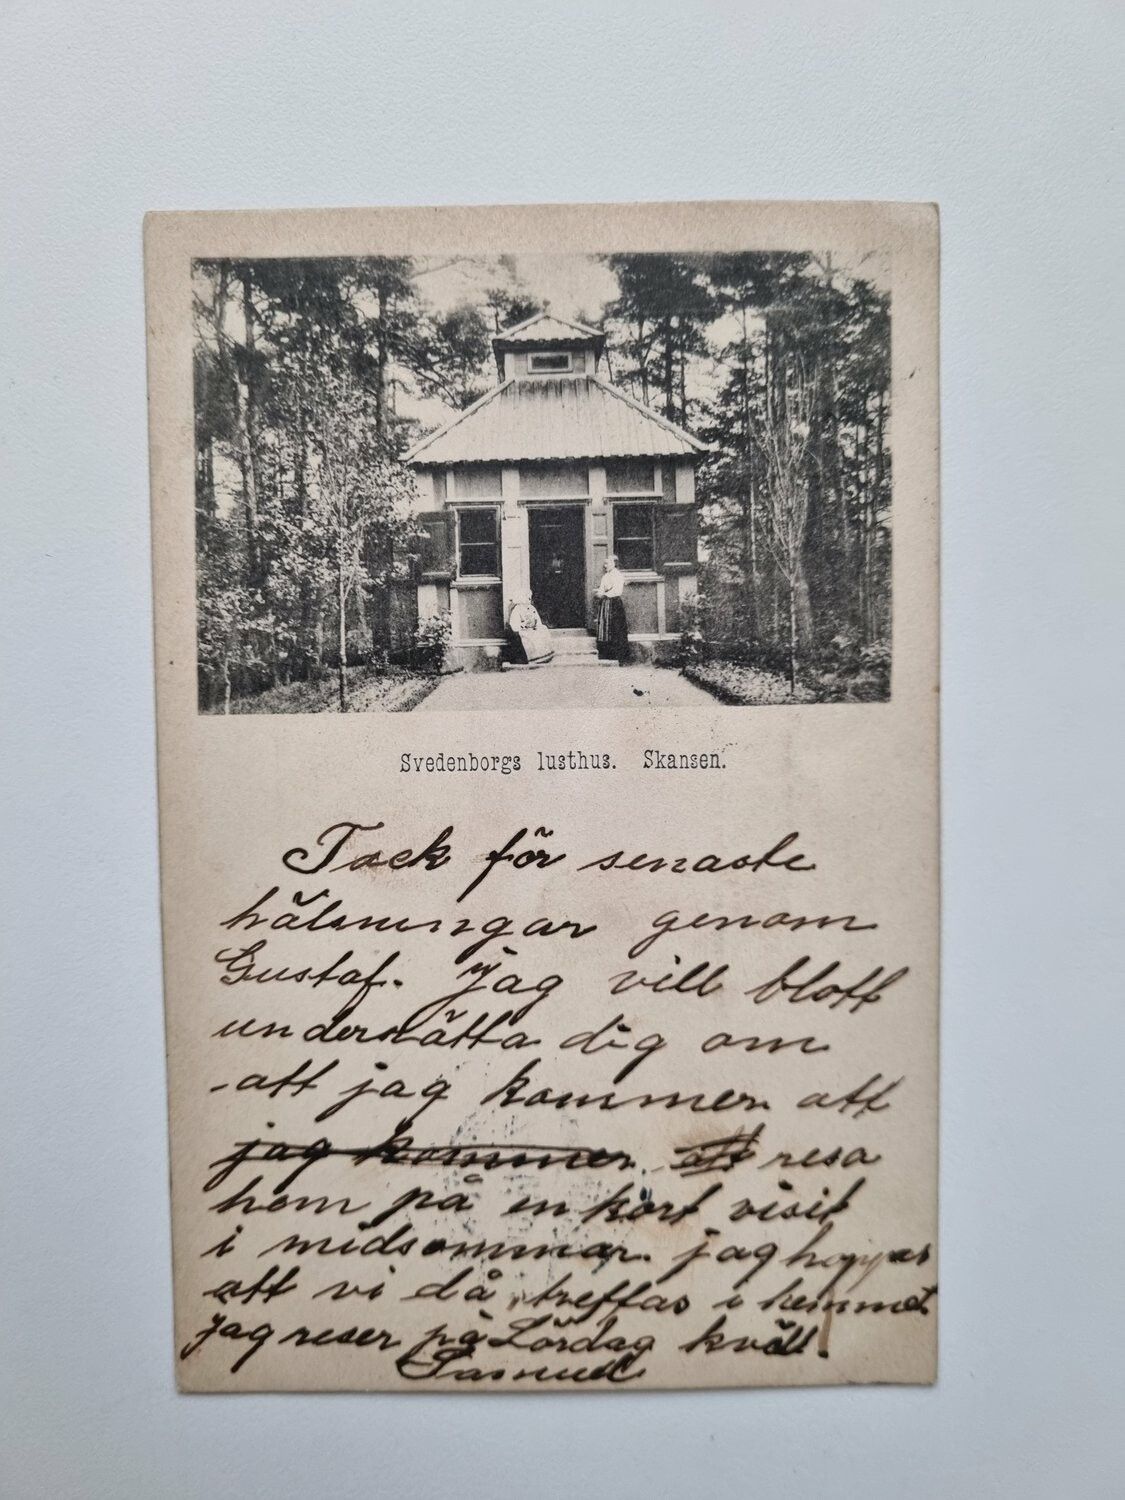 Svedenborgs lusthus. Skansen.
Tack för senaste
hälsningar genom
Gustaf. jag vill blott
underrätta dig om
att jag kommer att
jag kommer att resa
hem på en kort visit
i midsommar. jag hoppas
att vi då träffas i hemmet
Jag reser på Lördag kväll.
Samuel